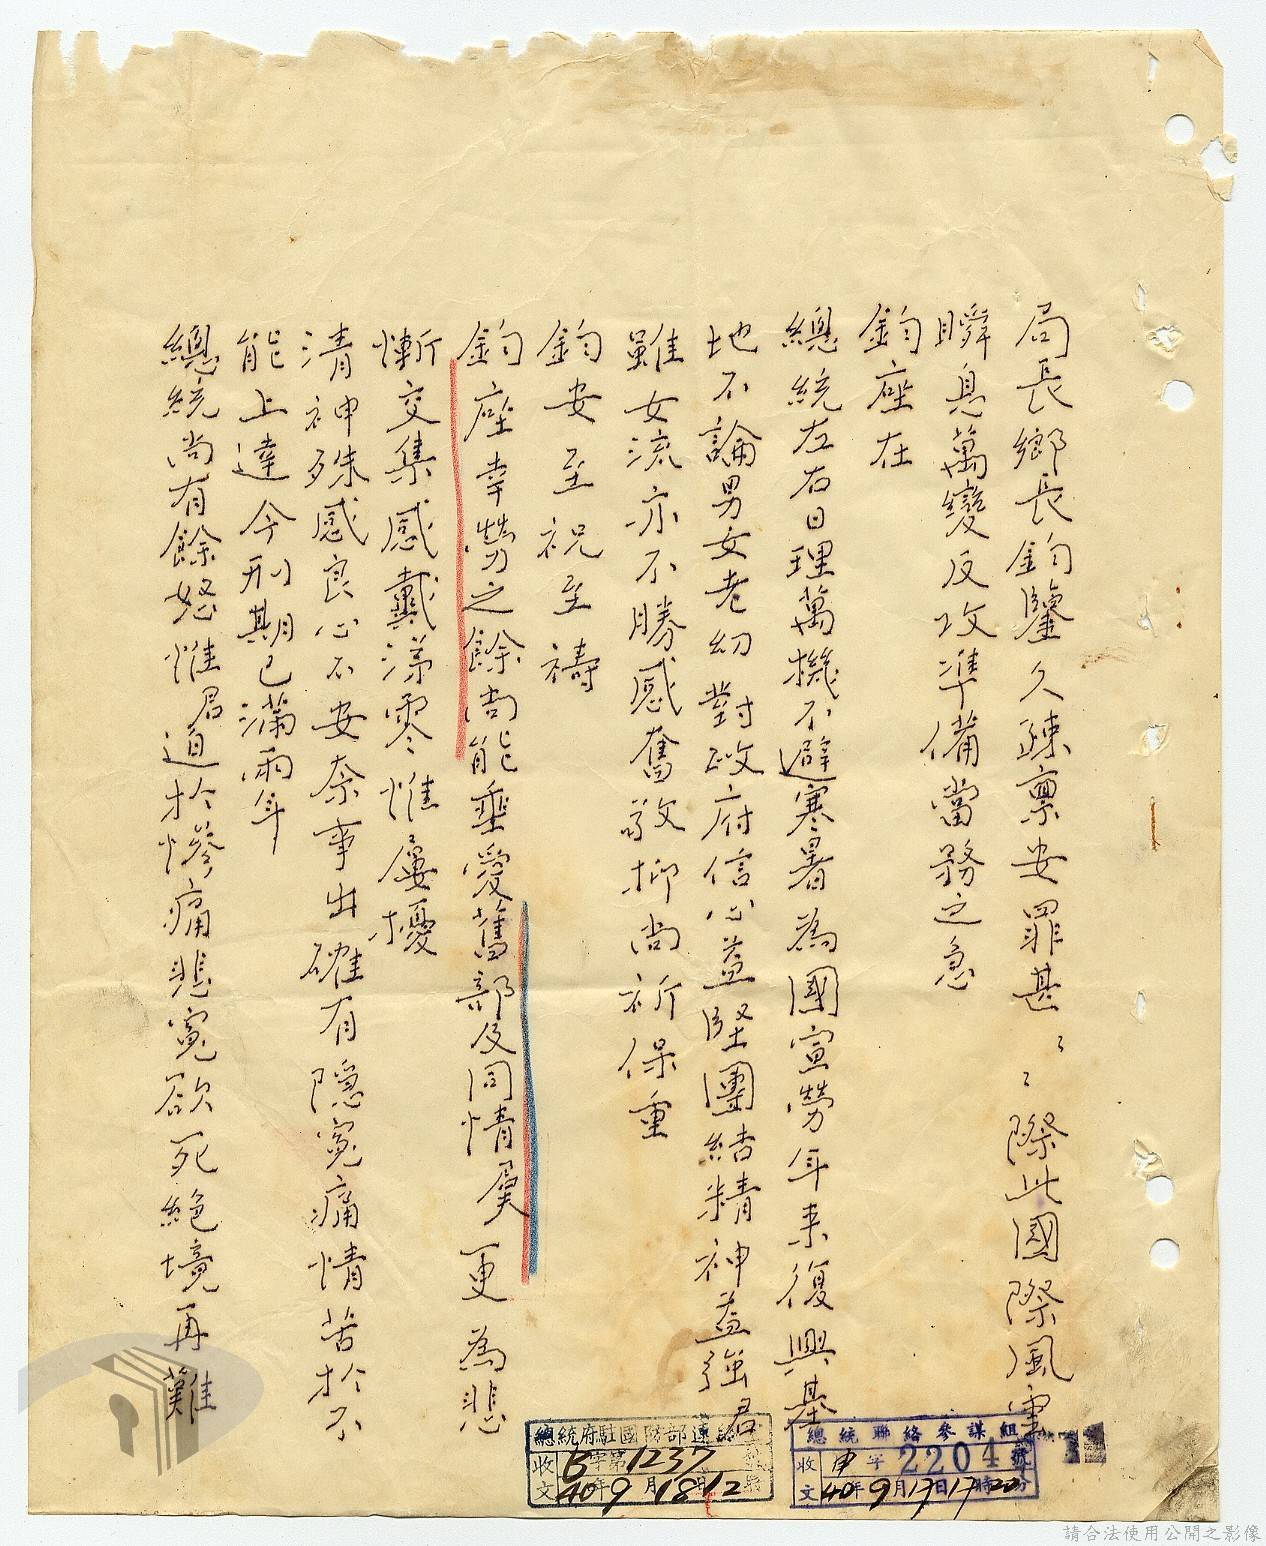 局長鄉長鈞鑒久疎稟安罪甚、、際此國際風雲
瞬息萬變反攻準備當務之急
鈞座在
總統左右日理萬機不避寒暑為國宣勞年来復興基
地不論男女老幼對政府信心益堅團結精神益強君
雖女流亦不勝感奮敬抑尚祈保重
鈞安至祝至禱
鈞座幸勞之餘尚能垂愛舊部及同情屬更為悲
慚交集感戴涕零惟屢擾
清神殊感良心不安奈事出確有隱冤痛情苦於不
能上達今刑期已滿兩年
總統尚有餘怒惟君迫於慘痛悲冤欲死絕境再難
總統聯絡參謀組
收文 申字 2204 號
40年9月17日17時20分
總統府駐國防部連絡
收文 B字第1237號
40年9月18日12
請合法使用公開之影像